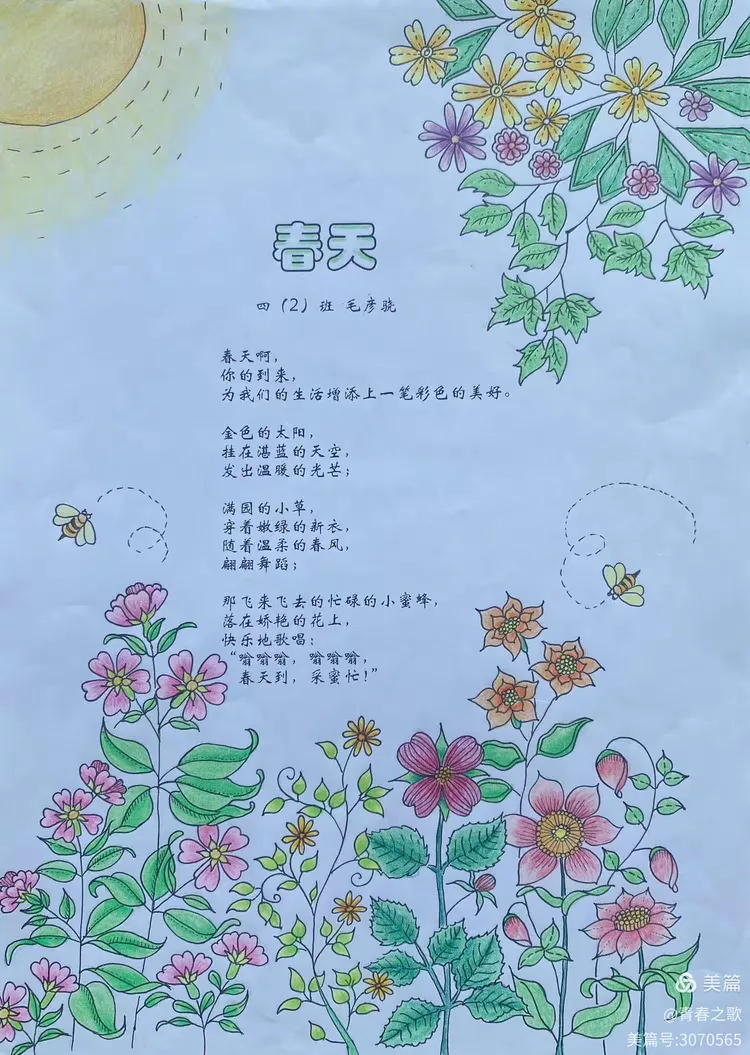 春天
四（2）班 毛彦骁
春天啊，
你的到来，
为我们的生活增添上一笔彩色的美好。
金色的太阳，
挂在湛蓝的天空，
发出温暖的光芒；
满园的小草，
穿着嫩绿的新衣，
随着温柔的春风，
翩翩舞蹈；
那飞来飞去的忙碌的小蜜蜂，
落在娇艳的花上，
快乐地歌唱：
“嗡嗡嗡，嗡嗡嗡，
春天到，采蜜忙！”
美篇
@青春之歌
美篇号:3070565